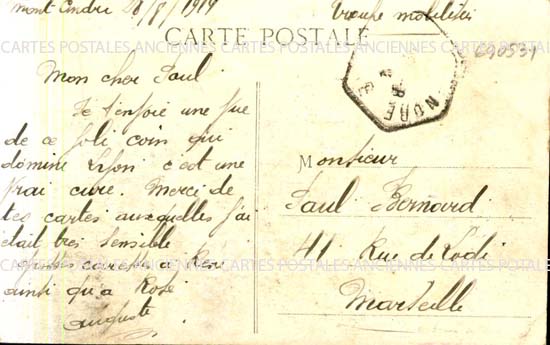 mont Cindre 28/8/1914
Troupe mobilisée
CARTE POSTALE
690531
CARTES POSTALES ANCIENNES CARTES POSTALES ANCIENNES CARTES POSTALES
Mon cher Paul
Je t'enfoie une fue
de ce joli coin qui
domine Lyon c'est une
frai cure. Merci de
tes cartes auxquelles j'ai
était tres sensible
caresses a René
ainsi qu'a Rose
Auguste
Monsieur
Paul Bernard
41 Rue de Lodi
Marseille
CARTES POSTALES ANCIENNES CARTES POSTALES ANCIENNES CARTES POTALES